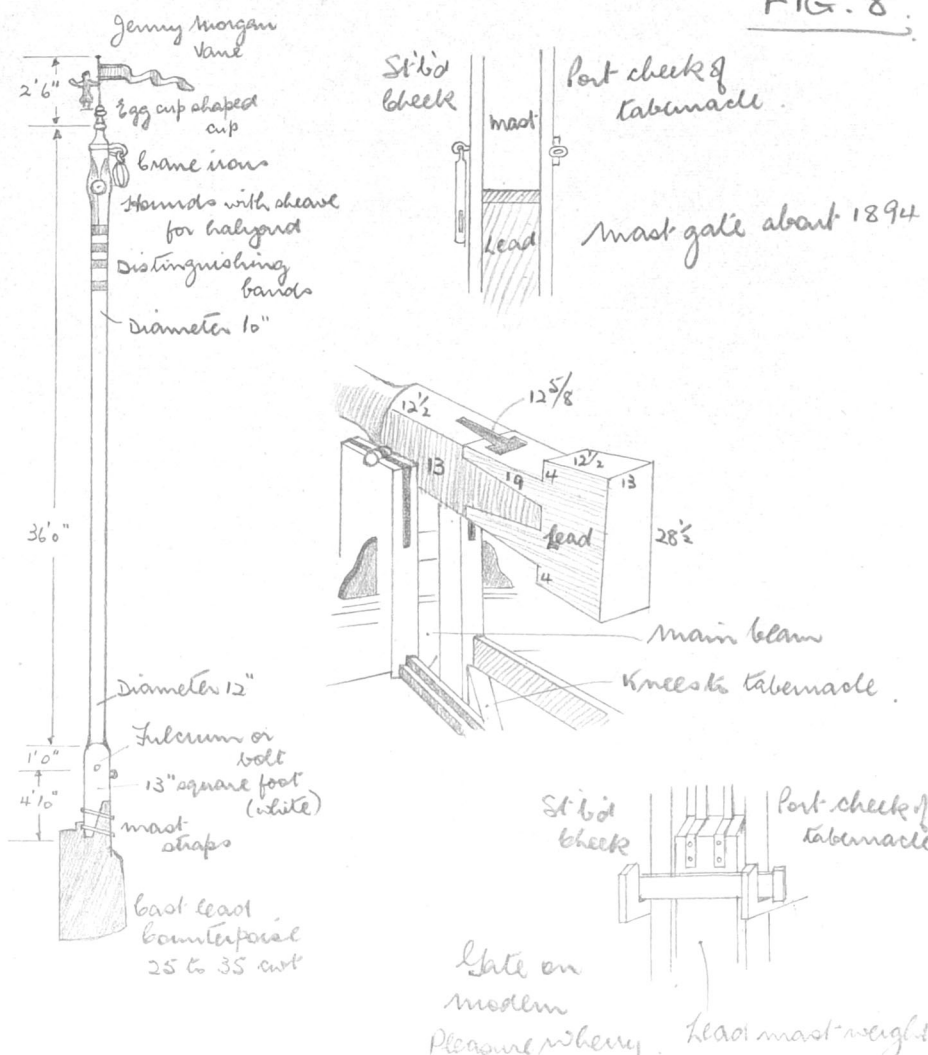 FIG. 8.
Jenny Morgan
Vane
2'6"
Egg cup shaped
cup
Crane irons
Hounds with sheave
for halyard
Distinguishing
bands
Diameter 10"
36'0"
Diameter 12"
Fulcrum or
bolt
1'0"
13" square foot
(white)
4'10"
mast
straps
Cast lead
Counterpoise
25 to 35 cwt
St'b'd
Cheek
Port cheek of
tabernacle.
mast
Lead
Mast gate about 1894
12 5/8
12½
13
19
4
12½
13
Lead
28½
4
Main beam
Knees to tabernacle.
St'b'd
Cheek
Port cheek of
tabernacle
Gate on
modern
Pleasure wherry.
Lead mast weight